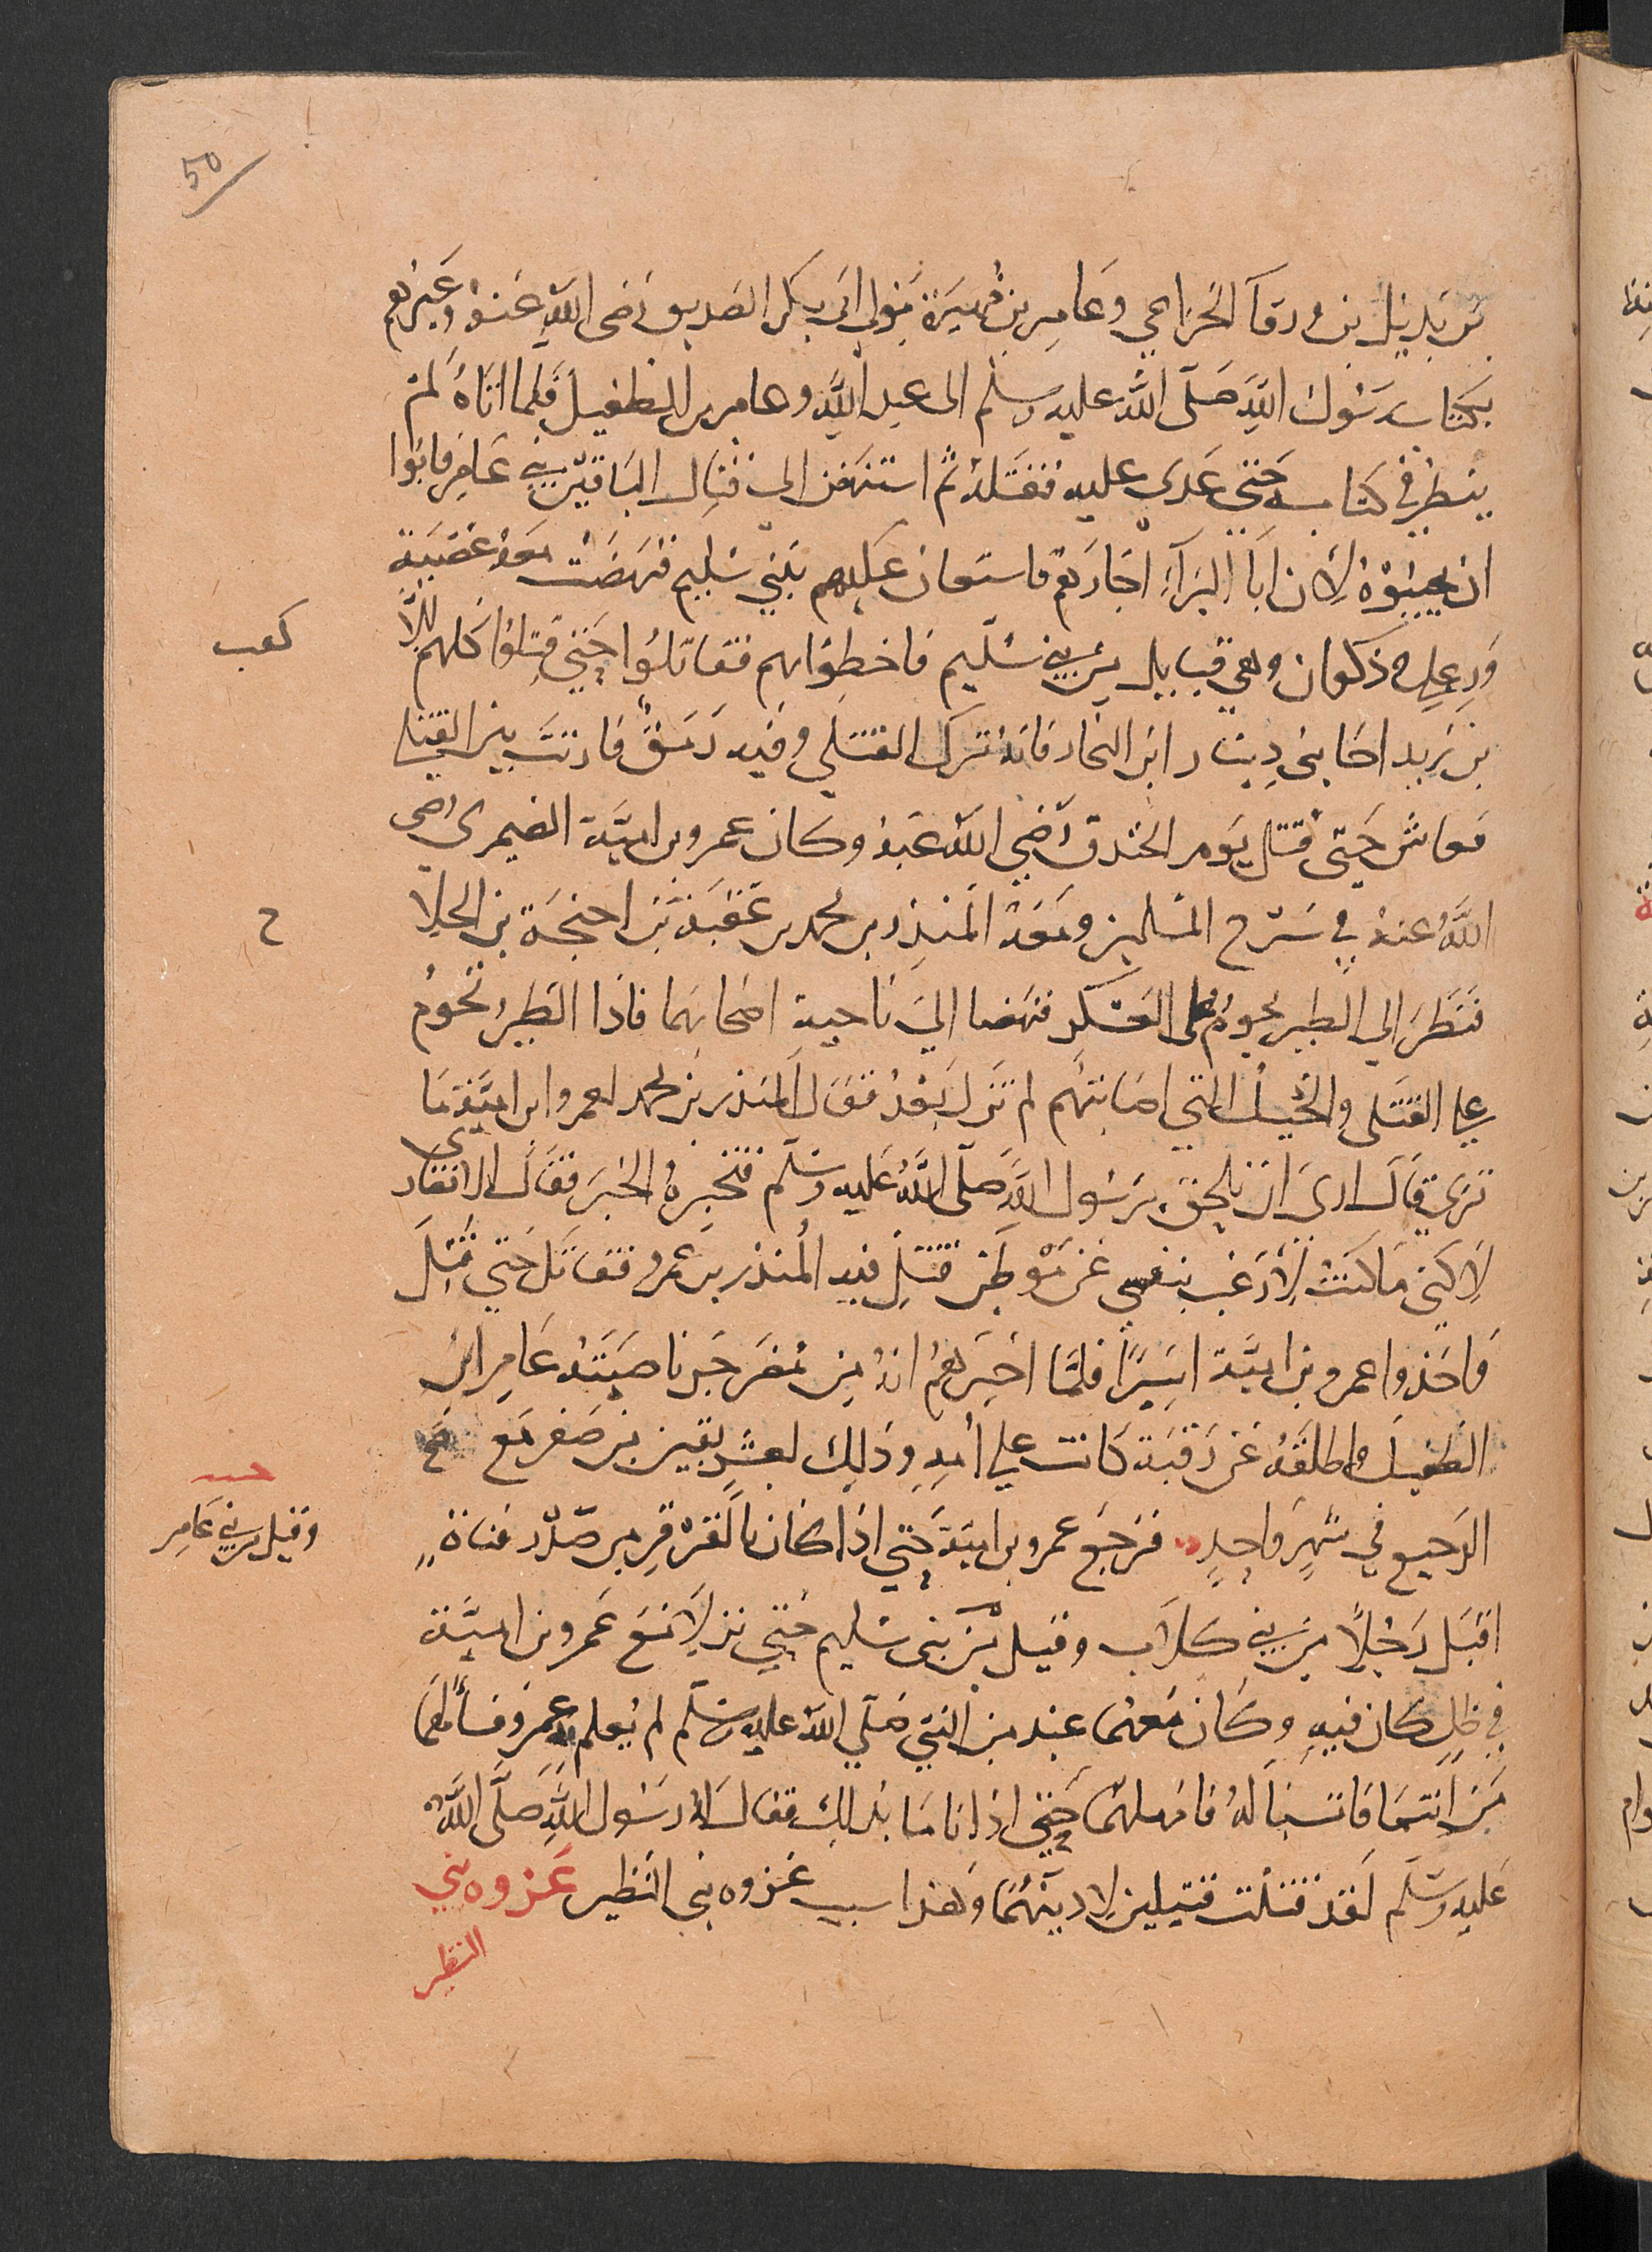 50
بن بديل بن ورقآ الخزاعي وعامر بن فهيرة مولى ابى بكر الصديق رضى الله عنه وغيرهم
بكتاب رسول الله صلى الله عليه وسلم الى عبد الله وعامر بن الطفيل فلما اتاه لم
ينظر في كتابه حتى عدى عليه فقتله ثم استنهض الى قتال الباقين بني عامر فابوا
ان يجيبوه لان ابا البرآء اجارهم فاستعان عليهم ببني سليم فنهضت معه عصية
ورعل وذكوان وهي قبايل من بني سليم فاحطوابهم فقاتلوا حتى قتلوا كلهم الا
كعب
بن زيد اخا بنى دينار ابن النجار فانه ترك القتلي وفيه رمق فارتث بين القتلي
فعاش حتى قتل يوم الخندق رضي الله عنه وكان عمرو بن امية الضمرى رضى
الله عنه في سرح المسلمين ومعه المنذر بن محمد بن عقبة بن احنجة بن الجلا
ح
فنظرا الي الطير يحوم على العسكر فنهضا الي ناحية اصحابهما فاذا الطير تحوم
علي القتلى والخيل التي اصابتهم لم تزل بعد فقال المنذر بن محمد لعمرو ابن امية ما
ترى قال ارى ان نلحق برسول الله صلى الله عليه وسلم فنخبره الخبر فقال الانصارى
لاكنى ما كنت لارغب بنفسي عن موطن قتل فيه المنذر بن عمرو فقاتل حتي قتل
فاخذوا عمرو بن امية اسيرًا فلما اخبرهم انه من مضر جز ناصيته عامر ابن
الطفيل واطلقه عن رقبة كانت علي امه وذلك لعشر بقين من صفر مع
الرجيع في شهر واحد فرجع عمرو بن امية حتي اذا كان بالقرقر من صدر قناة
وقيل من بني عامر
اقبل رجلا من بني كلاب وقيل من بنى سليم حتي نزلا مع عمرو بن امية
في ظل كان فيه وكان معهما عهد من النبي صلي الله عليه وسلم لم يعلم به عمرو فسألهما
من انتما فانتسبا له فامهلهما حتي اذا ناما بذلك فقال له رسول الله صلى الله
عليه وسلم لقد قتلت قتيلين لادينهما وهذا سبب غزوه بني النظير غزوه بني
النظير